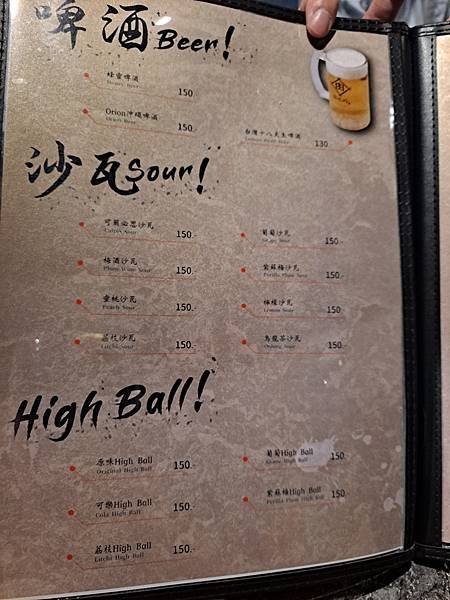 啤酒Beer!
蜂蜜啤酒
Honey Beer
150
Orion沖繩啤酒
Orion Beer
150
台灣十八天生啤酒
130
沙瓦Sour!
可爾必思沙瓦
Calpis Sour
150.-
梅酒沙瓦
Plum Wine Sour
150.-
蜜桃沙瓦
Peach Sour
150.-
荔枝沙瓦
Lichi Sour
150.-
葡萄沙瓦
Grape Sour
150.-
紫蘇梅沙瓦
Perilla Plum Sour
150.-
檸檬沙瓦
Lemon Sour
150.-
烏龍茶沙瓦
Oolong Sour
150.-
High Ball!
原味High Ball
Original High Ball
150.-
可樂High Ball
Cola High Ball
150.-
荔枝High Ball
Lichi High Ball
150.-
葡萄High Ball
150.-
紫蘇梅High Ball
Perilla Plum High Ball
150.-